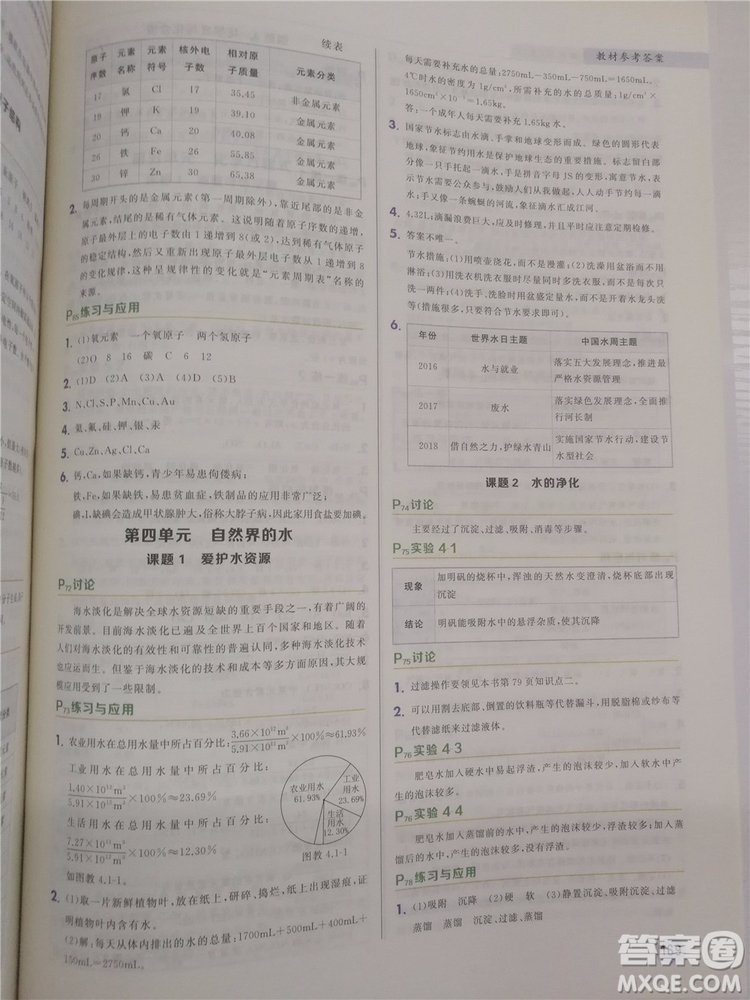 续表
原子序数 元素名称 元素符号 核外电子数 相对原子质量 元素分类
17 氯 Cl 17 35.45 非金属元素
19 钾 K 19 39.10 金属元素
20 钙 Ca 20 40.08 金属元素
26 铁 Fe 26 55.85 金属元素
30 锌 Zn 30 65.38 金属元素
2. 每周期开头的是金属元素(第一周期除外),靠近尾部的是非金
属元素,结尾的是稀有气体元素。每周期随着原子序数的递增,
原子最外层上的电子数由1递增到8(或2),达到稀有气体原子
的稳定结构,然后又重新出现原子最外层电子数从1递增到8
的变化规律,这种呈规律性的变化就是“元素周期表”名称的
来源。
P65练习与应用
1. (1)氧元素 一个氧原子 两个氢原子
(2)O 8 16 碳 C 6 12
2. (1)D (2)A (3)A (4)D
3. N、Cl、S、P、Mn、Cu、Au
4. 氦、氟、硅、钾、银、汞
5. Cu、Zn、Ag、Cl、S、P
6. 钙,Ca,如果缺钙,青少年易患佝偻病;
铁,Fe,如果缺铁,易患贫血症,铁制品的应用非常广泛;
碘,I,缺碘会造成甲状腺肿大,俗称大脖子病,因此家用食盐要加碘。
第四单元 自然界的水
课题1 爱护水资源
P72讨论
海水淡化是解决全球水资源短缺的重要手段之一,有着广阔的
开发前景。目前海水淡化已遍及全球上百个国家和地区。随着人
们对海水淡化技术的有效性和可靠性的普遍认同,许多种海水淡化技术
也应运而生。但鉴于海水淡化的技术和成本等多方面原因,海水淡化的
应用受到了一些限制。
P73练习与应用
1. 农业用水在总用水量中所占百分比:3.66×10¹²m³/5.91×10¹²m³×100%≈61.93%
工业用水在总用水量中所占百分比:
1.40×10¹²m³/5.91×10¹²m³×100%≈23.69%
生活用水在总用水量中所占百分比:
7.27×10¹¹m³/5.91×10¹²m³×100%≈12.30%
如图教4.1-1。
农业用水 61.93%
工业用水 23.69%
生活用水 12.30%
图教4.1-1
2. (1)证明:取一片新鲜植物叶,放在纸上,研碎、捣烂,纸上出现湿痕,证
明植物叶中含有大量的水。
(2)解:每天从体内排出的水的总量:1700mL+500mL+400mL+
150mL=2750mL。
教材参考答案
每天需要补充水的总量:2750mL-350mL-750mL=1650mL。
4℃时水的密度为1g/cm³,则需要补充水的质量为1g/cm³×
1650cm³×10⁻³=1.65kg。
答:一个成年人每天需要补充1.65kg水。
3. 国家节水标志由水滴、手掌和地球变形而成。绿色的圆形代表
地球,象征节约用水是保护地球生态的重要措施。标志留白部分
像一只手托起一滴水,手是拼音字母JS的变形,寓意为节水,表
示节水需要公众参与,鼓励人们从我做起,人人动手节约每一滴
水;手又像一条蜿蜒的河流,象征滴水汇成江河。
4. 4.32L;滴漏浪费巨大,应及时修理,并大力倡导节约用水。
5. 答案不唯一。
节水措施:(1)用喷壶浇花,而不是漫灌。(2)洗澡用盆浴而不用
淋浴;(3)用洗衣机洗衣服时尽量多洗几件衣服,而不要每次只
洗一两件;(4)洗手、洗脸时用盆盛定量水,而不是开着水龙头洗
等(措施很多,只要符合节水要求即可)。
6.
年份 世界水日主题 中国水周主题
2016 水与就业 落实五大发展理念,推进最严格水资源管理
2017 废水 落实绿色发展理念,全面推行河长制
2018 借自然之力,护绿水青山 实施国家节水行动,建设节水型社会
课题2 水的净化
P74讨论
主要经过了沉淀、过滤、吸附、消毒等步骤。
P75实验4 1
现象 加明矾的烧杯中,浑浊的天然水变澄清,烧杯底部出现沉淀
结论 明矾能吸附水中的悬浮杂质,使其沉降
P75讨论
1. 过滤操作要领见本书第79页知识点二。
2. 可以用割去底部、倒置的饮料瓶等代替漏斗,用脱脂棉或纱布等
代替滤纸来过滤液体。
P76实验4 3
肥皂水加入硬水中易起浮渣,产生的泡沫较少,加入软水中产
生的泡沫较多。
P76实验4 4
肥皂水加入蒸馏前的水中,产生的泡沫较少,浮渣较多;加入蒸
馏后的水中,产生的泡沫较多,没有浮渣。
P78练习与应用
1. (1)吸附 沉降 (2)硬 软 (3)静置沉淀、吸附沉淀、过滤、
蒸馏 蒸馏 沉淀、过滤、吸附、蒸馏
答案圈
MXQE.COM